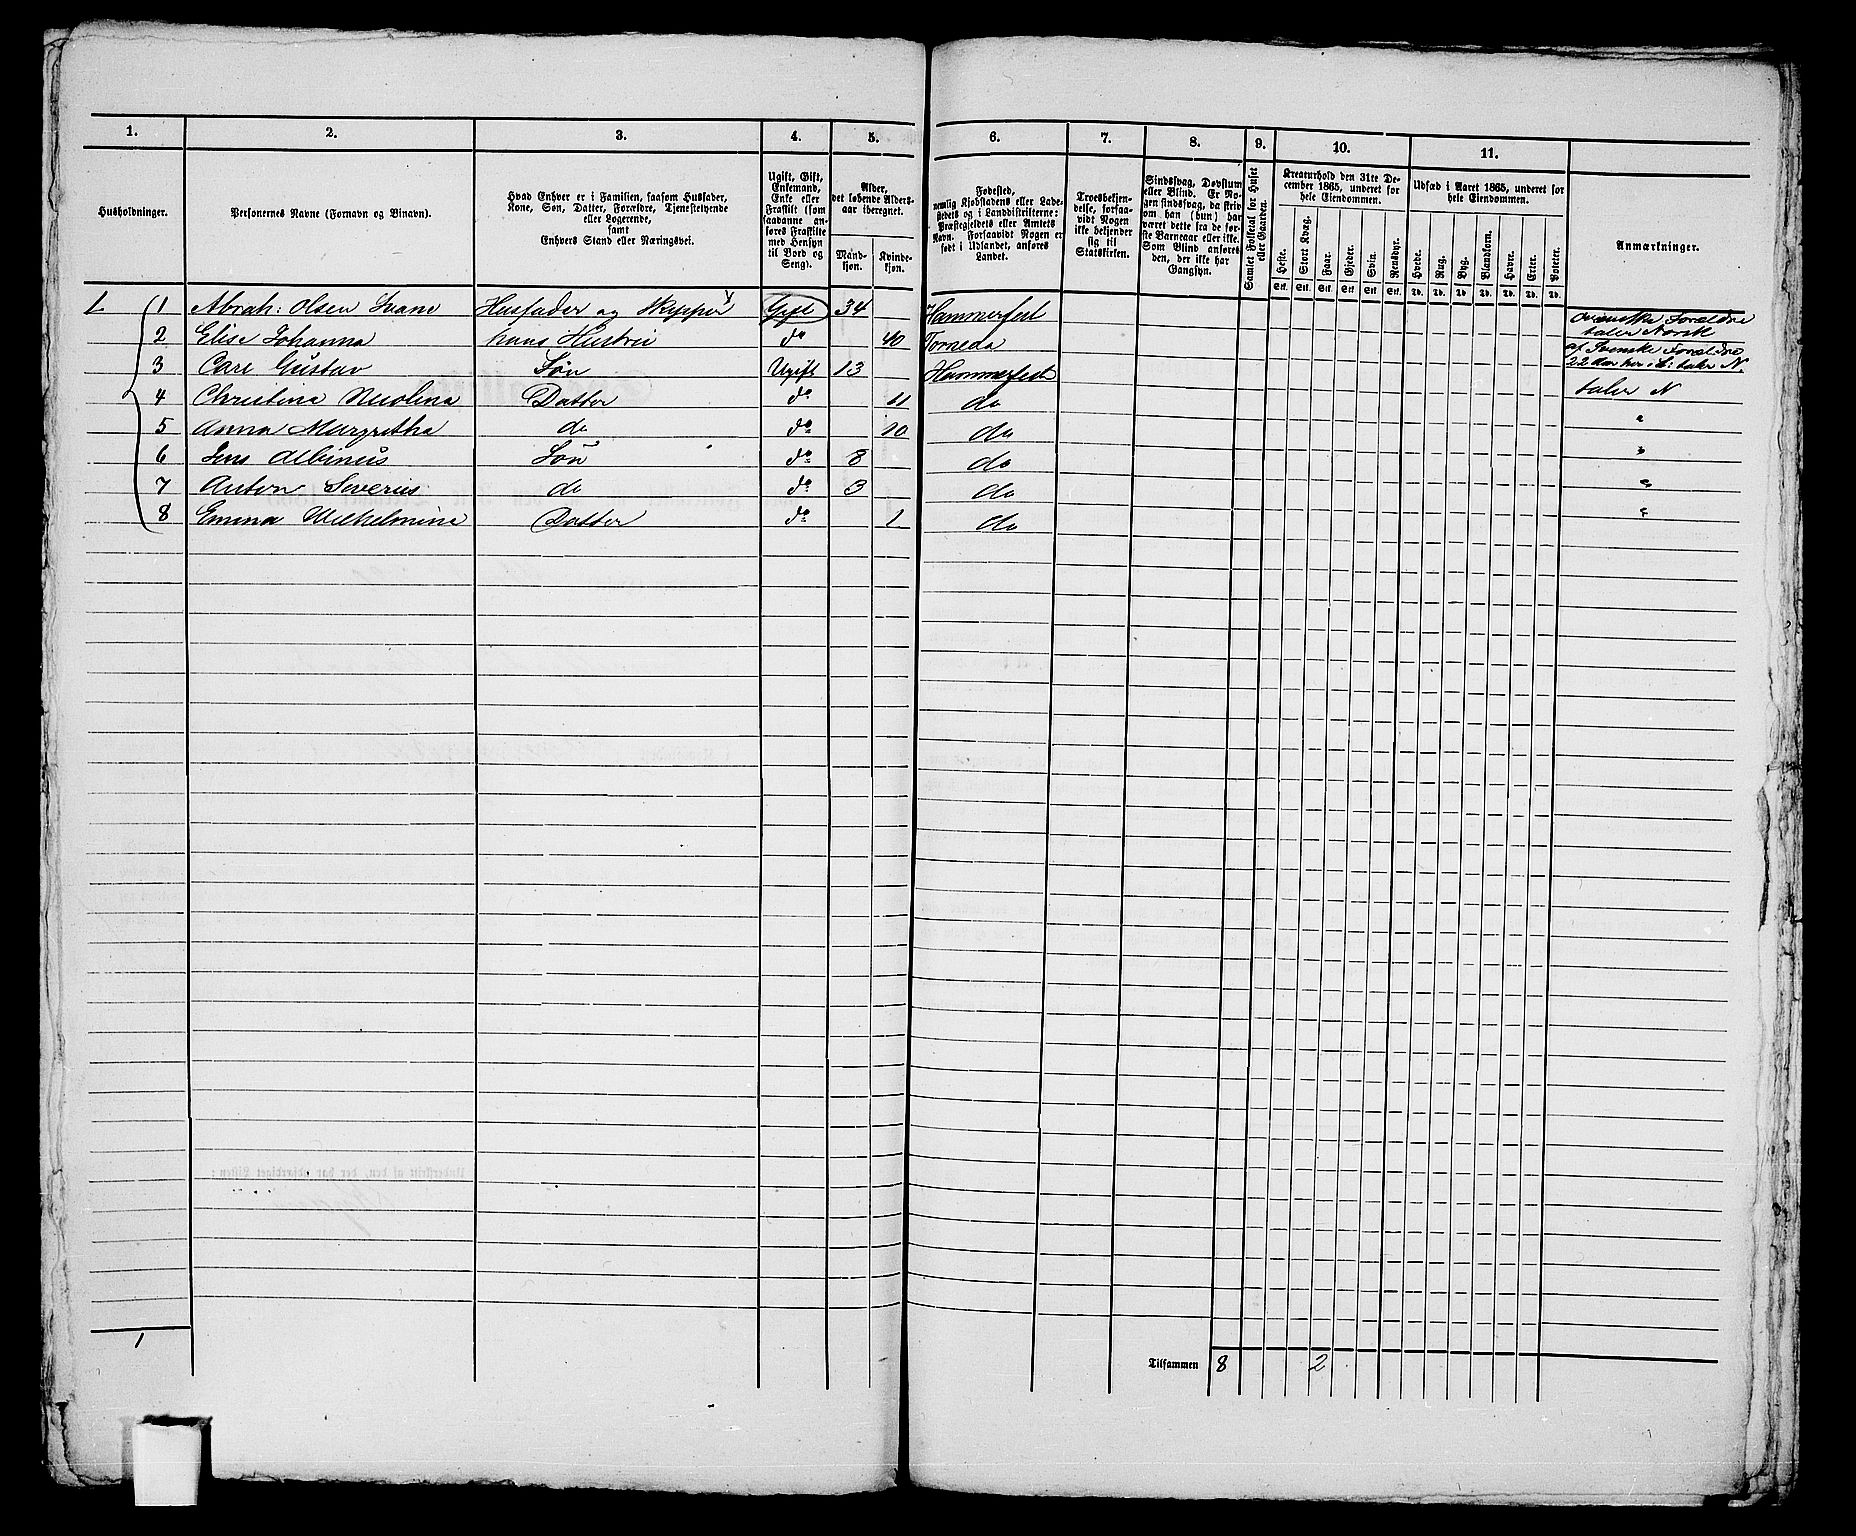 1. 2. 3. 4. 5. 6. 7. 8. 9. 10. 11.
Husholdninger.
Personernes Navne (Fornavn og Binavn).
Hvad Enhver er i Familien, saasom Husfader,
Kone, Søn, Datter, Forældre, Tjenestetyende
eller Logerende,
samt
Enhvers Stand eller Næringsvei.
Ugift, Gift,
Enkemand,
Enke eller
Fraskilt (som
saadanne anføres Fraskilte
med Hensyn
til Bord og
Seng).
Alder,
det løbende Aldersaar iberegnet.
Mandkjøn.
Kvindekjøn.
Fødested,
nemlig Kjøbstadens eller Ladestedets og i Landdistrikterne:
Præstegjeldets eller Amtets
Navn. Forsaavidt Nogen er
født i Udlandet, anføres
Landet.
Troesbekjendelse, forsaavidt Nogen
ikke bekjender
sig til
Statskirken.
Sindssvag, Døvstum
eller Blind. Er Nogen sindssvag, da skriv
om han (hun) har
været dette fra de første Barneaar eller ikke.
Som Blind anføres
den, der ikke har
Gangsyn.
Samlet Folketal for Huset
eller Gaarden.
Kreaturhold den 31te December 1865, underet for
hele Eiendommen.
Heste. Stort Kvæg. Faar. Gjeder. Svin. Rensdyr.
Stk. Stk. Stk. Stk. Stk. Stk.
Udsæd i Aaret 1865, underet for
hele Eiendommen.
Hvede. Rug. Byg. Blandkorn. Havre. Erter. Poteter.
Td. Td. Td. Td. Td. Td. Td.
Anmærkninger.
1 Abrah: Olsen Svane Husfader og Skipper Gift 34 Hammerfest Svenske Forældre
taler Norsk
2 Elise Johanna hans Hustru do 40 Torneda af Svenske Forældre
22 Aar her i L: taler N.
3 Carl Gustav Søn Ugift 13 Hammerfest taler N
4 Christina Nicolina Datter do 11 do "
5 Anna Margretha do do 10 do "
6 Jens Albinus Søn do 8 do "
7 Anton Severin do do 3 do "
8 Emma Wilhelmine Datter do 1 do
1
Tilsammen 8 2